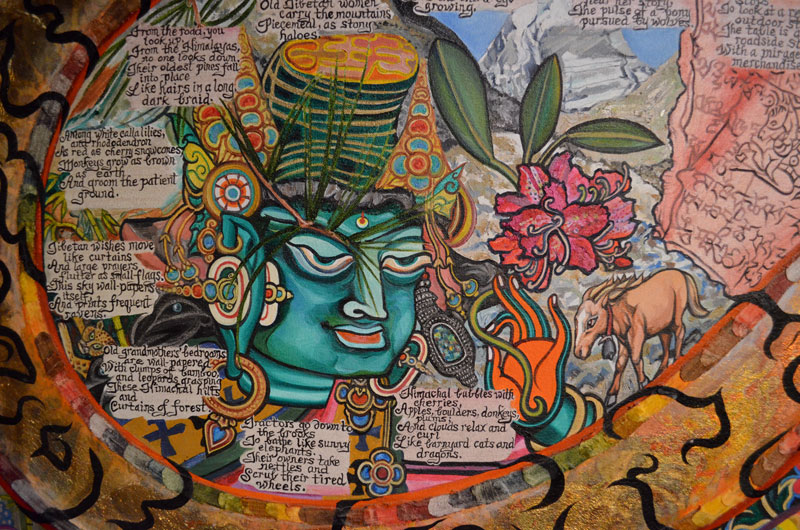 Old Tibetan women
carry the mountains
Piecemeal, as stony
haloes.
growing.
hear her story,
The pulse of a pony
pursued by wolves.
To look at a
outdoor
The table is a
roadside
With a mirage
merchandise
From the road, you
look up.
From the Himalayas,
no one looks down.
Their oldest pines fall
into place
Like hairs in a long,
dark braid.
Among white calla lilies,
and rhododendron
As red as cherry snowcones
Monkeys grow as brown
as earth
And groom the patient
ground.
Tibetan wishes move
like curtains
And large prayers
flutter as small flags.
This sky wall-papers
itself
And prints frequent
ravens.
Old grandmothers' bedrooms
are wall-papered
With clumps of bamboo,
and leopards grasping
These Himachal hills
and
Curtains of forest.
Tractors go down to
the brooks
To bathe like sunny
elephants.
Their owners take
nettles and
Scrub their tired
wheels.
Himachal bubbles with
cherries,
Apples, boulders, donkeys,
plums,
And clouds relax and
curl
Like barnyard cats and
dragons.